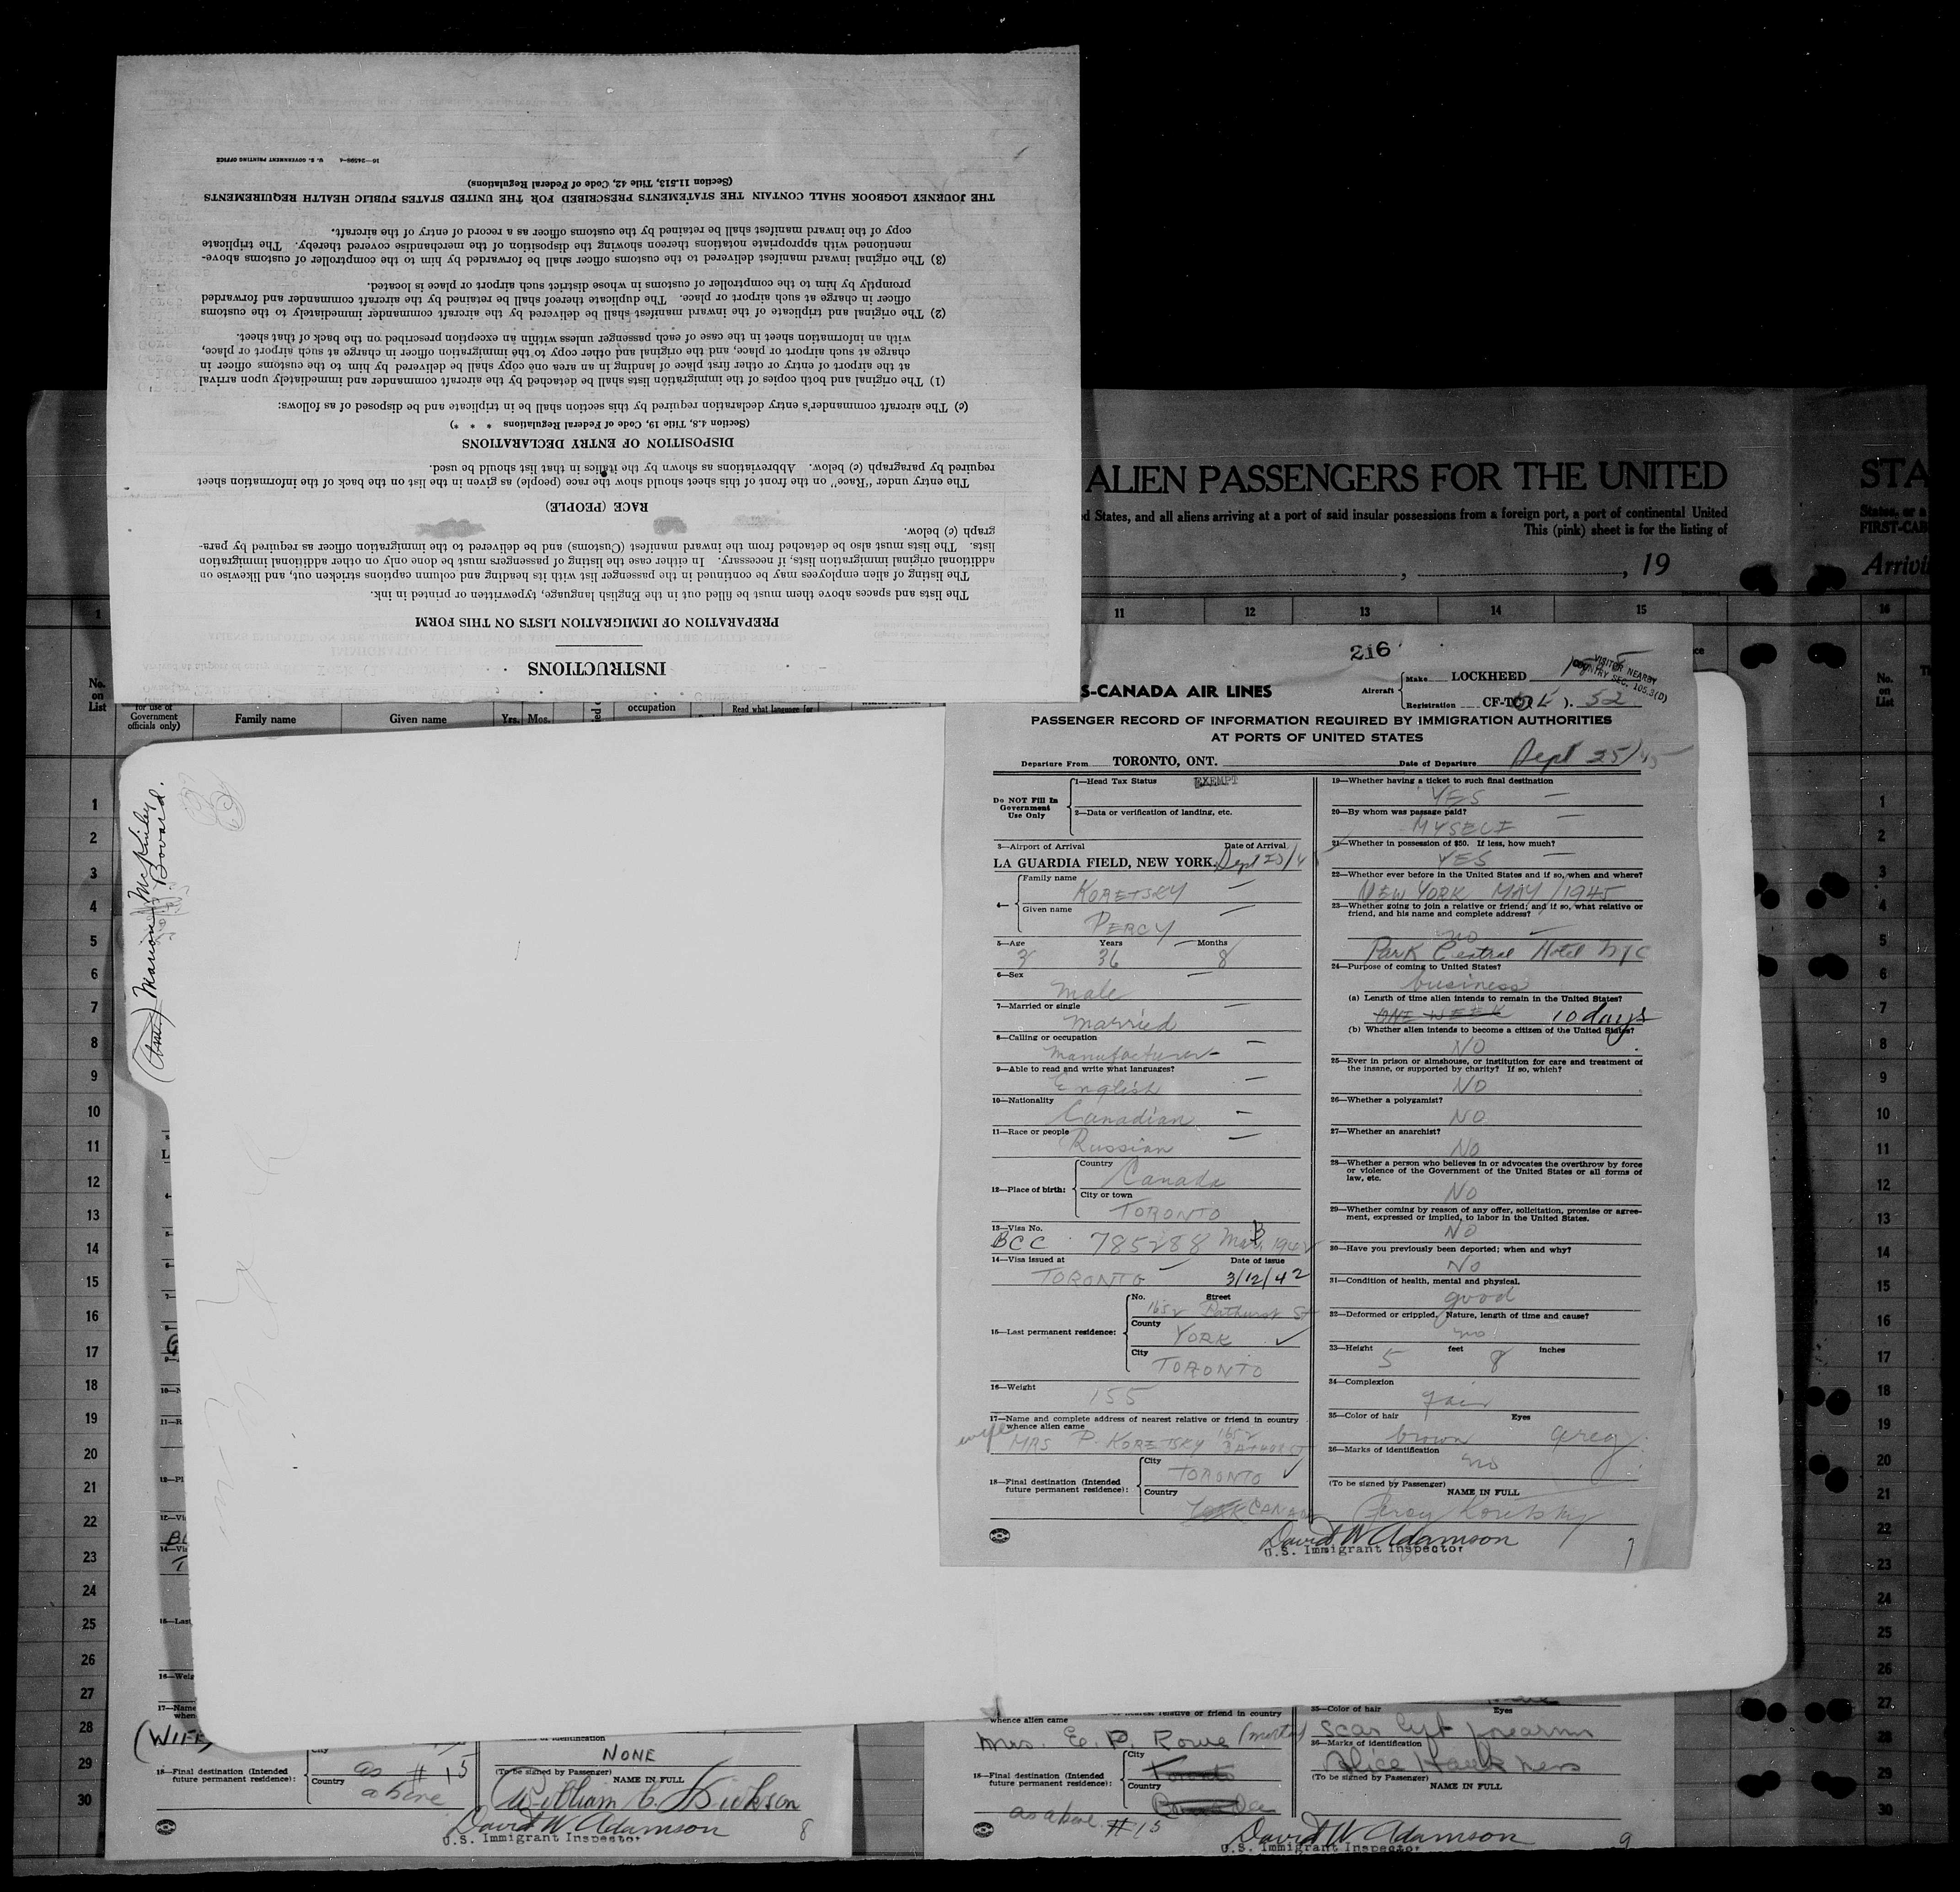 INSTRUCTIONS
PREPARATION OF IMMIGRATION LISTS ON THIS FORM
The lists and spaces above them must be filled out in the English language, typewritten or printed in ink.
The listing of alien employees may be continued in the passenger list with its heading and column captions stricken out, and likewise on
additional original immigration lists, if necessary. In either case the listing of passengers must be done only on other additional immigration
lists. The lists must also be detached from the inward manifest (Customs) and be delivered to the immigration officer as required by para-
graph (c) below.
RACE (PEOPLE)
The entry under "Race" on the front of this sheet should show the race (people) as given in the list on the back of the information sheet
required by paragraph (c) below. Abbreviations as shown by the italics in that list should be used.
DISPOSITION OF ENTRY DECLARATIONS
(Section 4.8, Title 19, Code of Federal Regulations * * *)
(c) The aircraft commander's entry declaration required by this section shall be in triplicate and be disposed of as follows:
(1) The original and both copies of the immigration lists shall be detached by the aircraft commander and immediately upon arrival
at the airport of entry or other first place of landing in an area one copy shall be delivered by him to the customs officer in
charge at such airport or place, and the original and other copy to the immigration officer in charge at such airport or place,
with an information sheet in the case of each passenger unless within an exception prescribed on the back of that sheet.
(2) The original and triplicate of the inward manifest shall be delivered by the aircraft commander immediately to the customs
officer in charge at such airport or place. The duplicate thereof shall be retained by the aircraft commander and forwarded
promptly by him to the comptroller of customs in whose district such airport or place is located.
(3) The original inward manifest delivered to the customs officer shall be forwarded by him to the comptroller of customs above-
mentioned with appropriate notations thereon showing the disposition of the merchandise covered thereby. The triplicate
copy of the inward manifest shall be retained by the customs officer as a record of entry of the aircraft.
THE JOURNEY LOGBOOK SHALL CONTAIN THE STATEMENTS PRESCRIBED FOR THE UNITED STATES PUBLIC HEALTH REQUIREMENTS
(Section 11.513, Title 42, Code of Federal Regulations)
16—24598-4 U. S. GOVERNMENT PRINTING OFFICE
ALIEN PASSENGERS FOR THE UNITED
STA
d States, and all aliens arriving at a port of said insular possessions from a foreign port, a port of continental United
States, or a
This (pink) sheet is for the listing of
FIRST-CAB
, 19
Arrivi
1 11 12 13 14 15 16
No. on List
for use of Government officials only)
Family name
Given name
Yrs. Mos.
occupation
Read what language (or
No. on List
Marion McKinley Bovaird.
216
VISITOR NEARBY
COUNTRY SEC. 105.3(D)
S-CANADA AIR LINES
Aircraft
Make LOCKHEED
Registration CF-TC ). 52
PASSENGER RECORD OF INFORMATION REQUIRED BY IMMIGRATION AUTHORITIES
AT PORTS OF UNITED STATES
Departure From TORONTO, ONT. Date of Departure Sept 25/45
Do NOT Fill In Government Use Only
1—Head Tax Status EXEMPT
2—Data or verification of landing, etc.
3—Airport of Arrival Date of Arrival
LA GUARDIA FIELD, NEW YORK.
4—
Family name
KORETSKY
Given name
PERCY
5—Age Years Months
36 8
6—Sex
Male
7—Married or single
Married
8—Calling or occupation
Manufacturer
9—Able to read and write what languages?
English
10—Nationality
Canadian
11—Race or people
Russian
12—Place of birth:
Country
Canada
City or town
TORONTO
13—Visa No.
BCC 785288
14—Visa issued at Date of issue
TORONTO 3/12/42
15—Last permanent residence:
No. Street
1652 Bathurst St
County
YORK
City
TORONTO
16—Weight
155
17—Name and complete address of nearest relative or friend in country
whence alien came
wife MRS P. KORETSKY 1652 BATHURST
18—Final destination (Intended
future permanent residence):
City
TORONTO
Country
YORK CANADA
19—Whether having a ticket to such final destination
YES
20—By whom was passage paid?
MYSELF
21—Whether in possession of $50. If less, how much?
YES
22—Whether ever before in the United States and if so, when and where?
NEW YORK MAY/1945
23—Whether going to join a relative or friend; and if so, what relative or
friend, and his name and complete address?
no
Park Central Hotel NYC
24—Purpose of coming to United States?
business
(a) Length of time alien intends to remain in the United States?
ONE WEEK 10 days
(b) Whether alien intends to become a citizen of the United States?
NO
25—Ever in prison or almshouse, or institution for care and treatment of
the insane, or supported by charity? If so, which?
NO
26—Whether a polygamist?
NO
27—Whether an anarchist?
NO
28—Whether a person who believes in or advocates the overthrow by force
or violence of the Government of the United States or all forms of
law, etc.
NO
29—Whether coming by reason of any offer, solicitation, promise or agree-
ment, expressed or implied, to labor in the United States.
NO
30—Have you previously been deported; when and why?
No
31—Condition of health, mental and physical.
good
32—Deformed or crippled, Nature, length of time and cause?
no
33—Height 5 feet 8 inches
34—Complexion
fair
35—Color of hair Eyes
brown grey
36—Marks of identification
no
(To be signed by Passenger)
NAME IN FULL
Percy Koretsky
David W Adamson
U.S. Immigrant Inspector
7
(WIFE)
NONE
18—Final destination (Intended
future permanent residence):
City
Country
as # 15
above
(To be signed by Passenger)
NAME IN FULL
David W Adamson
U.S. Immigrant Inspector
8
whence alien came
Mrs. E. P. Rowe
18—Final destination (Intended
future permanent residence):
City
Toronto
Country
as above #15
35—Color of hair Eyes
scar left forearm
36—Marks of identification
(To be signed by Passenger)
NAME IN FULL
David W. Adamson
U.S. Immigrant Inspector
9